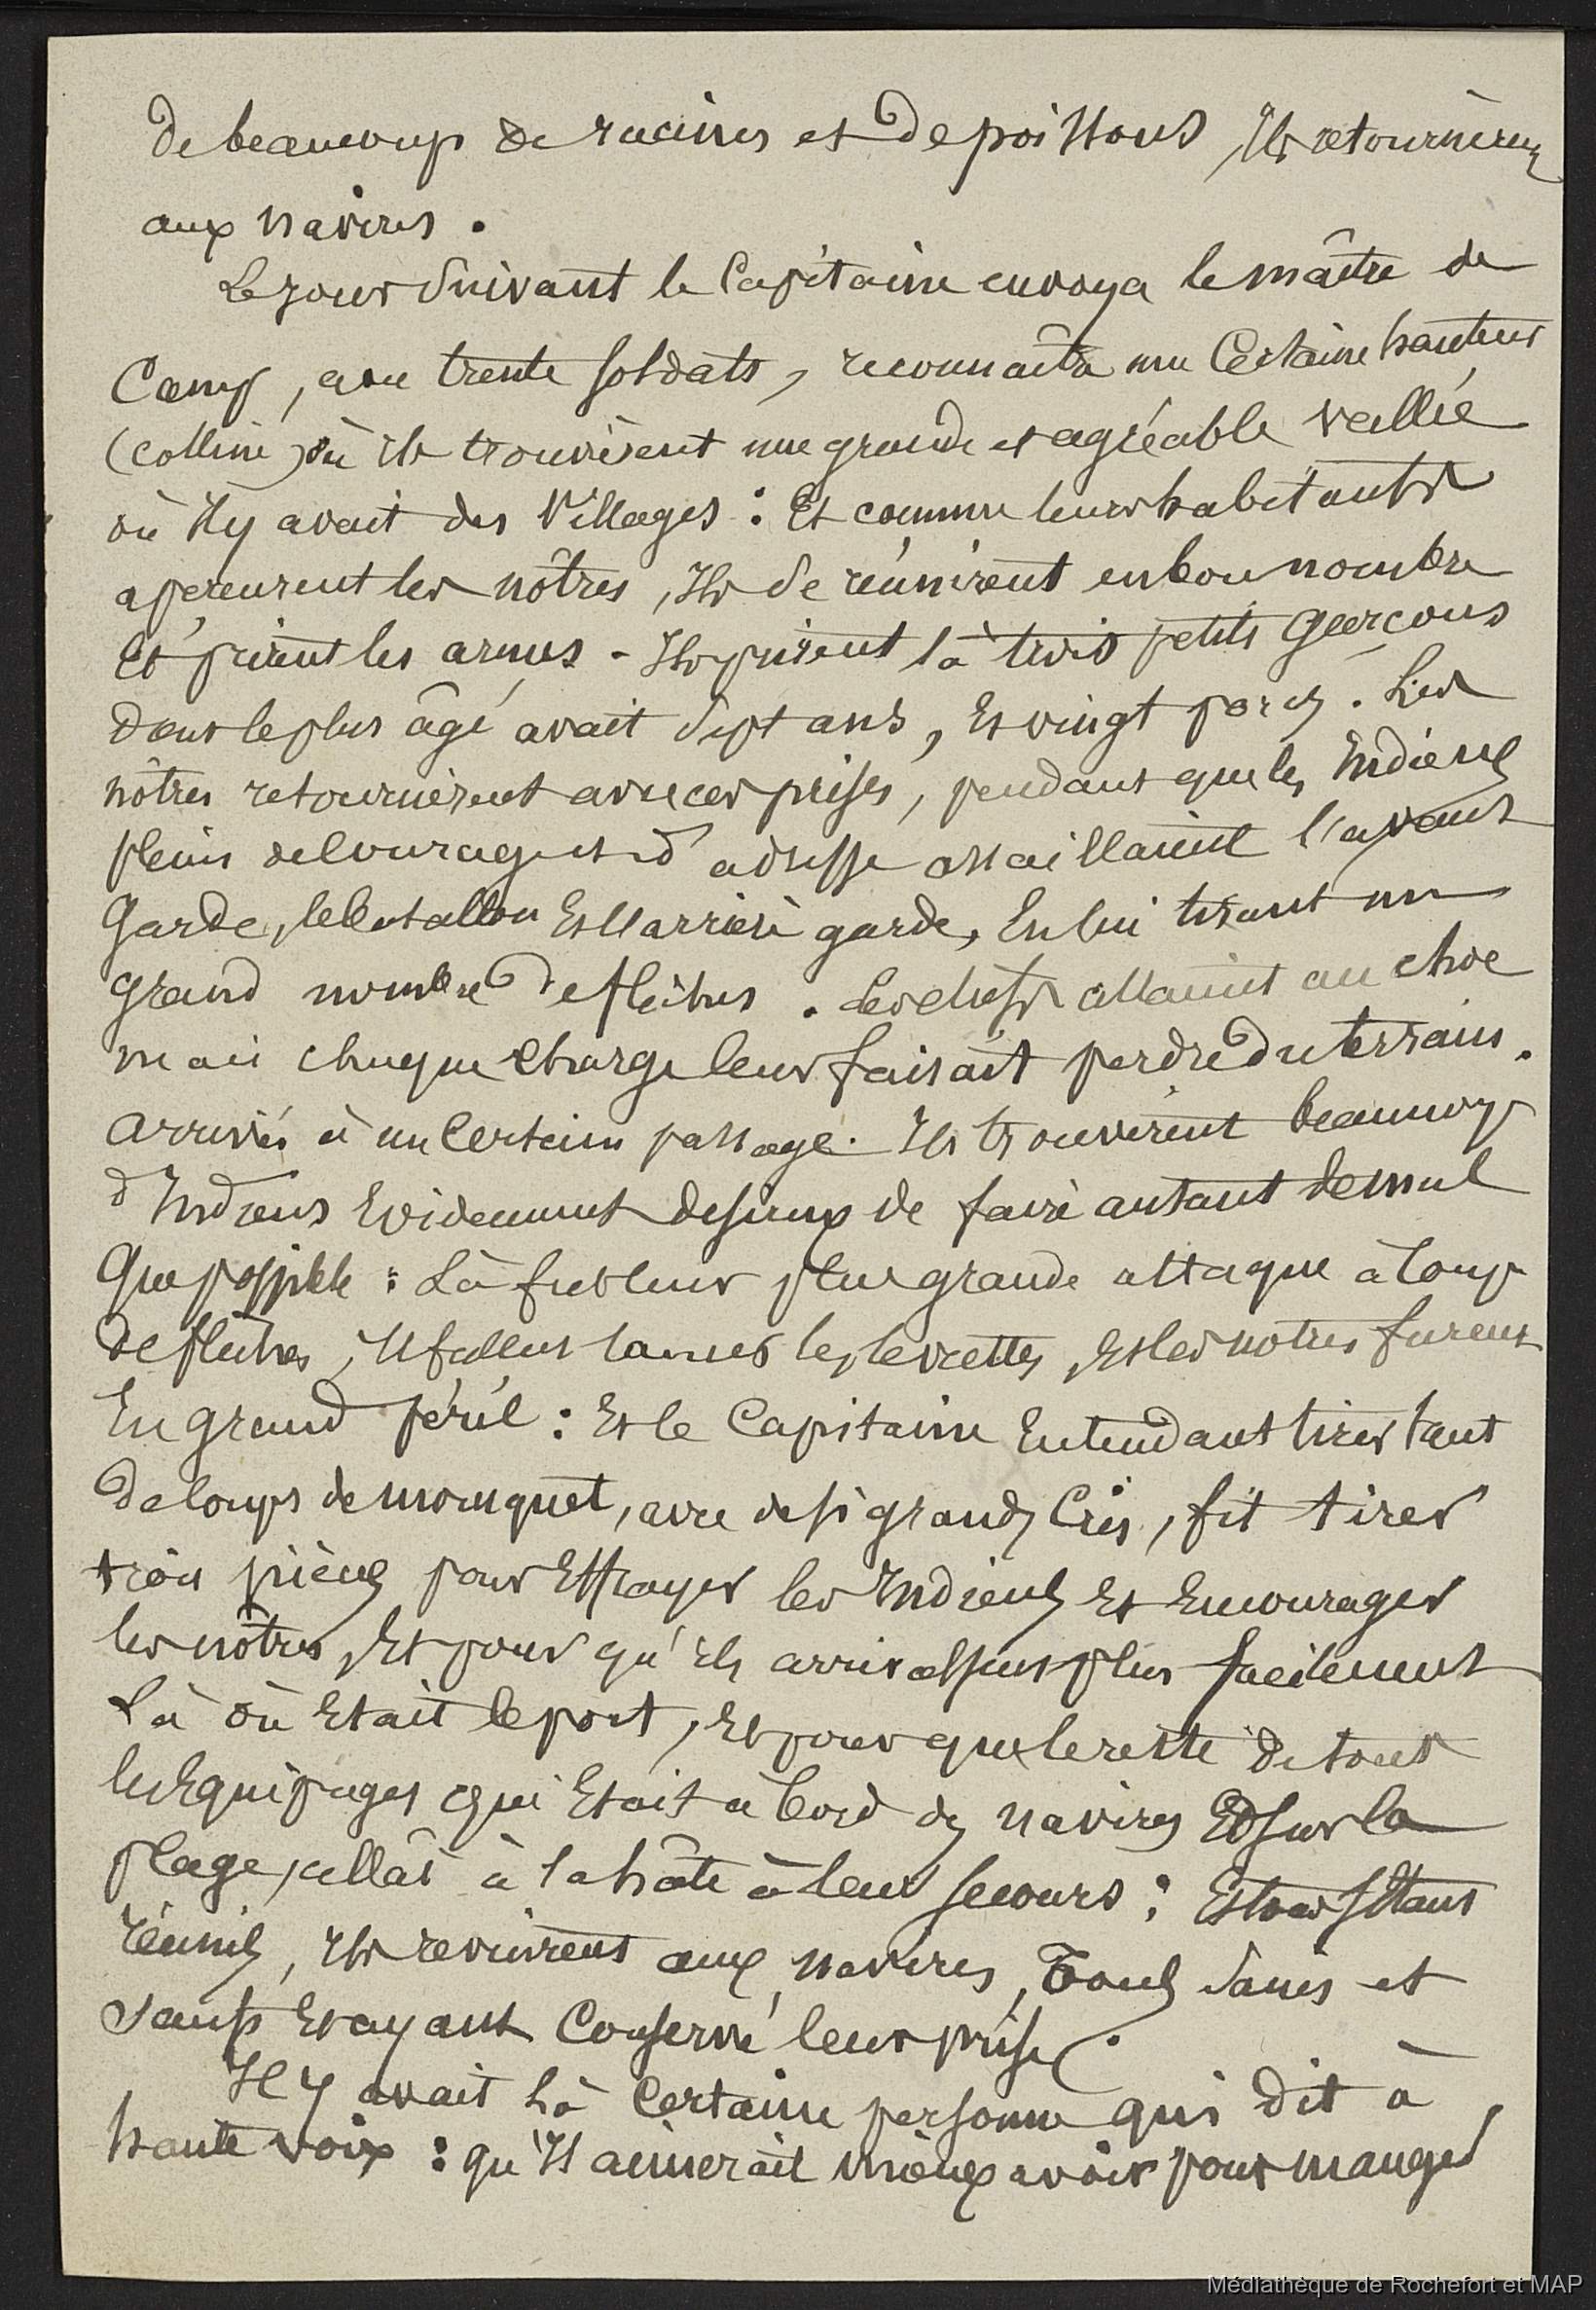 de beaucoup de racines et de poissons, Ils retournèrent
aux navires.
Le jour suivant le Capitaine envoya le maître de
Camp, avec trente soldats, reconnaître une Certaine hauteur
(colline) où ils trouvèrent une grande et agréable vallée
où Il y avait des Villages : Et comme leurs habitants
aperçurent les nôtres, Ils se réunirent en bon nombre
Et prirent les armes - Ils prirent là trois petits Garçons
dont le plus âgé avait sept ans, Et vingt porcs. Les
nôtres retournèrent avec ces prises, pendant que les Indiens
pleins de Courage et d'adresse assaillaient l'avant
Garde, le bataillon Et l'arrière garde, En lui tirant un
grand nombre de flèches. Les chefs allaient au choc
mais chaque charge leur faisait perdre du terrain.
Arrivés à un Certain passage. Ils trouvèrent beaucoup
d'Indiens Evidemment desireux de faire autant de mal
Que possible : Là fut leur plus grande attaque à Coups
de flèches, Il fallut lancer les levrettes, Et les notres furent
En grand péril : Et le Capitaine Entendant tirer tant
de Coups de mousquet, avec de si grands Cris, fit tirer
trois pièces pour Effrayer les Indiens Et Encourager
les nôtres, Et pour qu'ils arrivassent plus facilement
Là où Etait le port, Et pour que le reste de tous
les Equipages qui Etait à bord des navires Et sur la
plage, allât à la hâte à leur secours ; Et tous s'Etant
réunis, Ils revinrent aux navires, Tous sains et
saufs Et ayant Conservé leur prise.
Il y avait là Certaine personne qui dit à
haute voix : qu'Il aimerait mieux avoir pour manger
Médiathèque de Rochefort et MAP